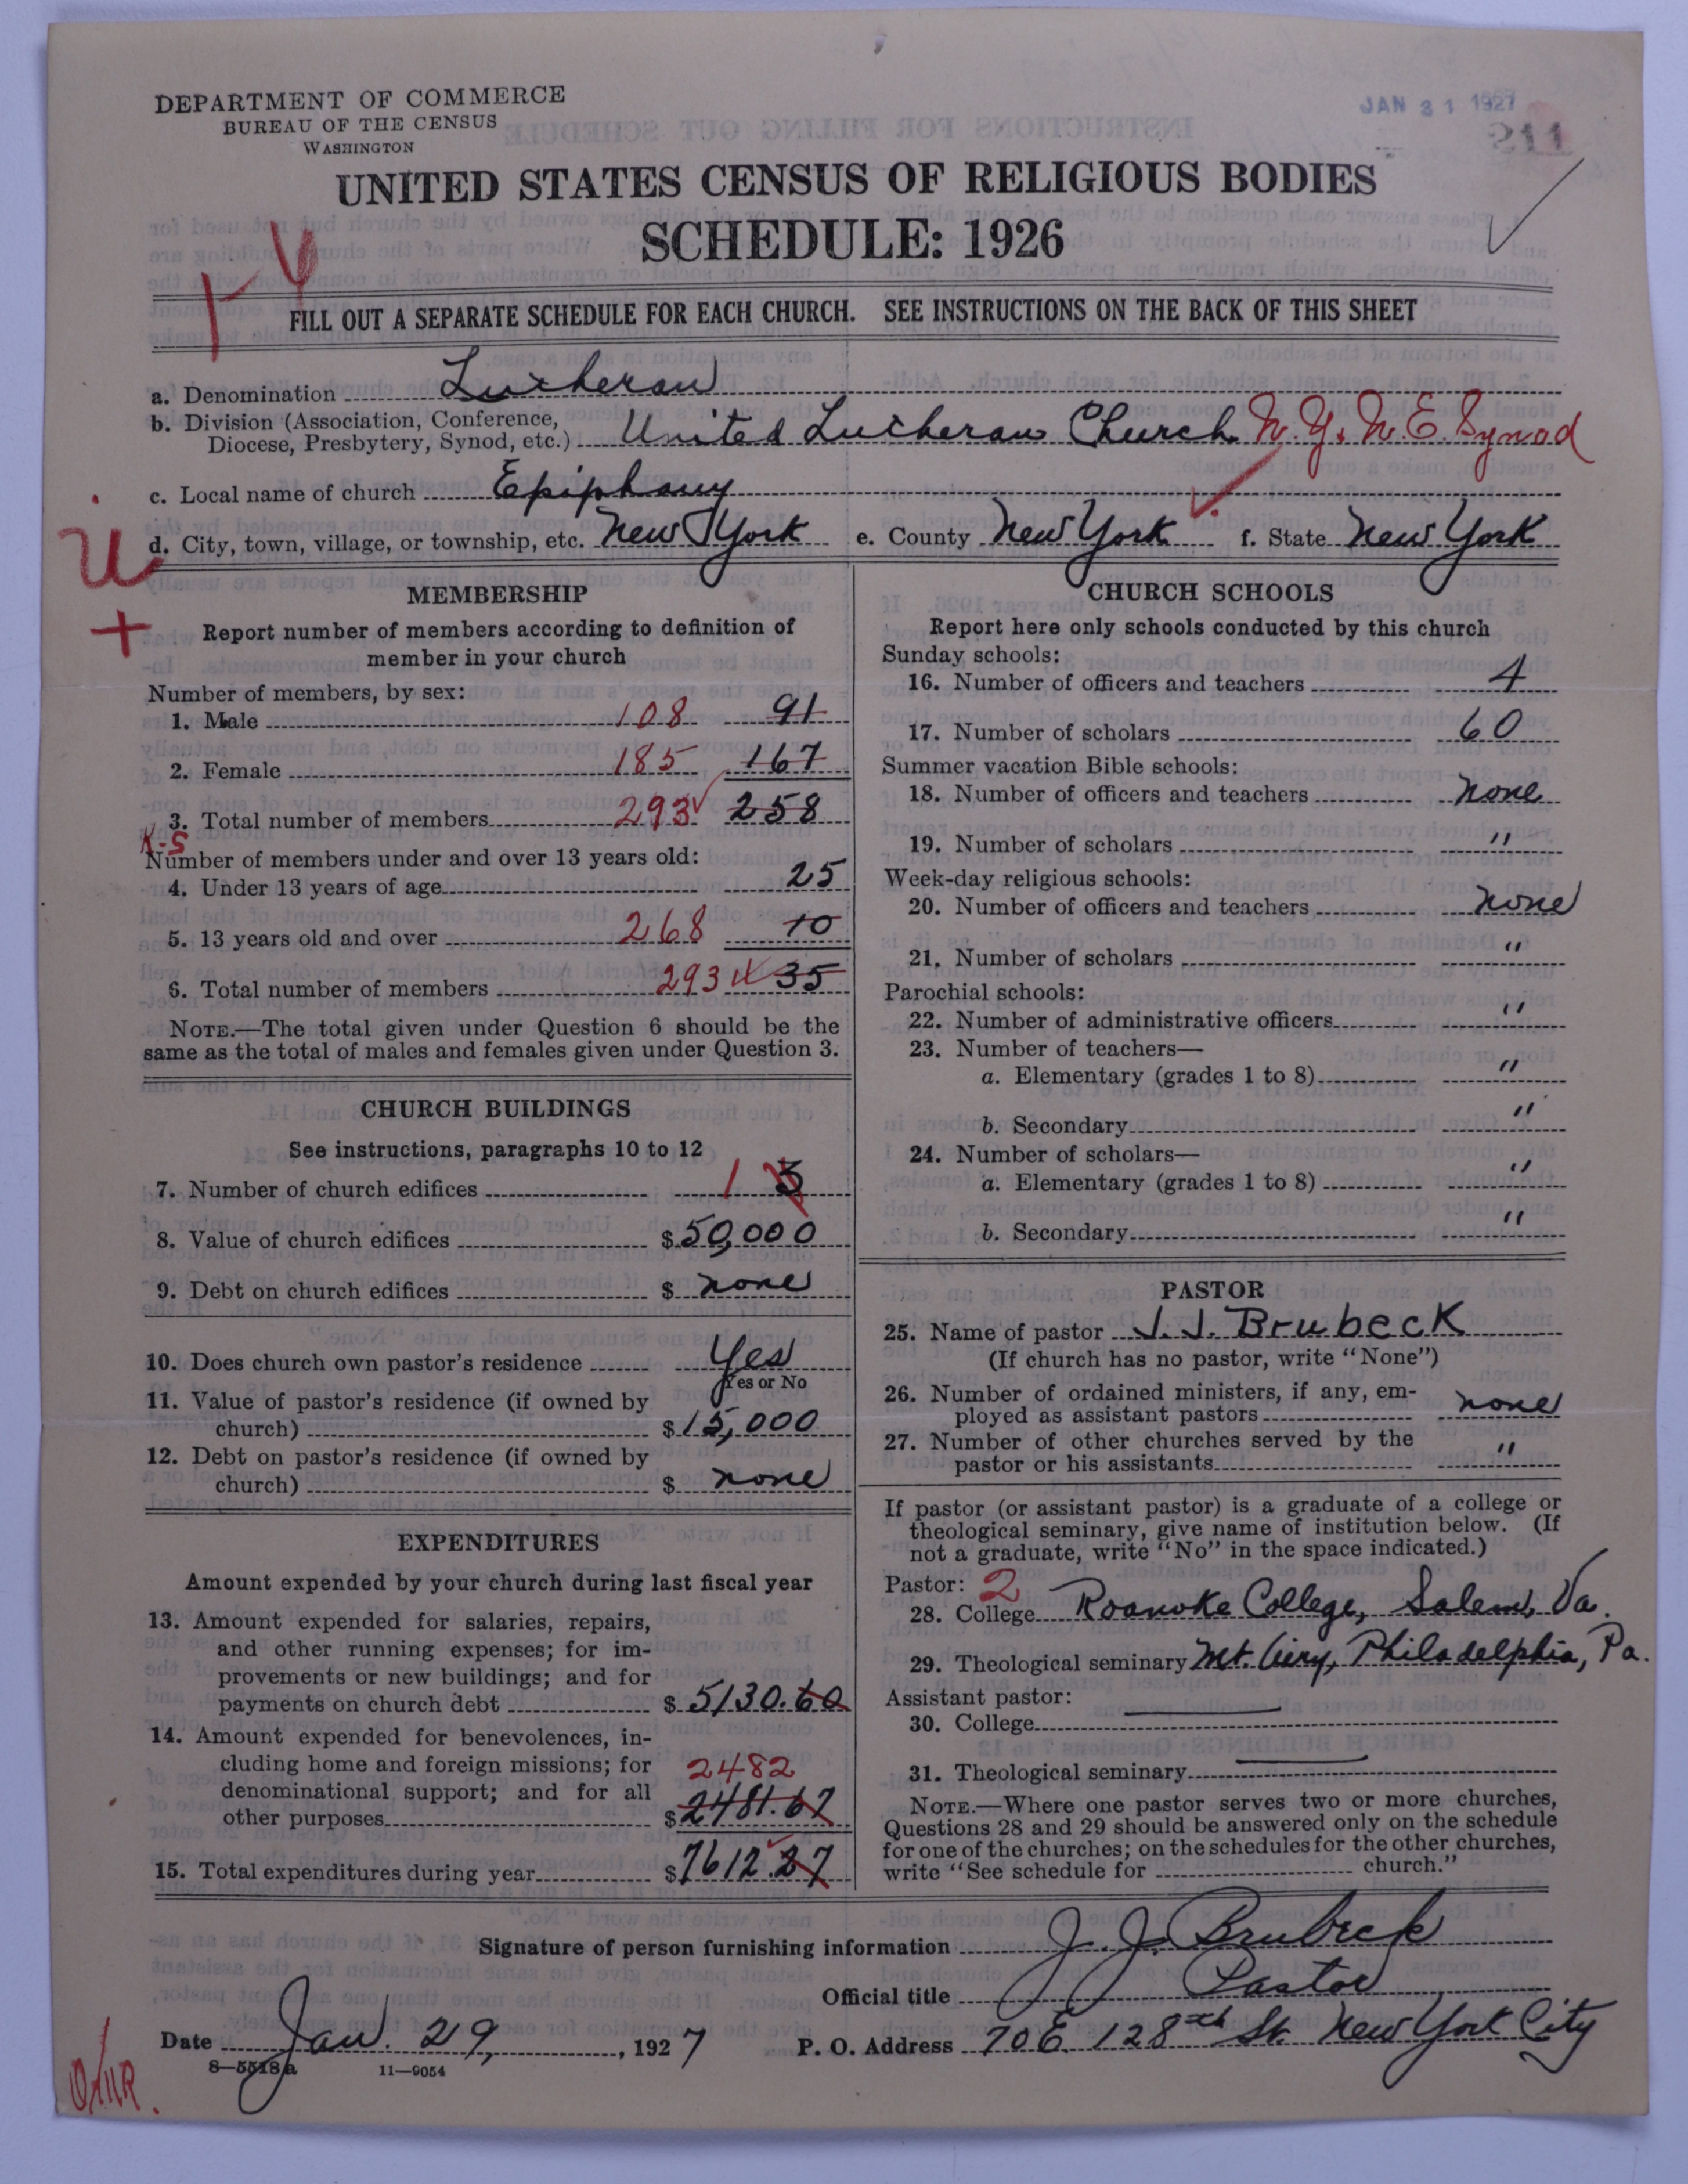 DEPARTMENT OF COMMERCE
BUREAU OF THE CENSUS
WASHINGTON
JAN 31 1927
211
UNITED STATES CENSUS OF RELIGIOUS BODIES
SCHEDULE: 1926
FILL OUT A SEPARATE SCHEDULE FOR EACH CHURCH. SEE INSTRUCTIONS ON THE BACK OF THIS SHEET
a. Denomination Lutheran
b. Division (Association, Conference,
Diocese, Presbytery, Synod, etc.) United Lutheran Church N.Y. N.E. Synod
c. Local name of church Epiphany
d. City, town, village, or township, etc. New York e. County New York f. State New York
MEMBERSHIP
Report number of members according to definition of
member in your church
Number of members, by sex:
1. Male 108 91
2. Female 185 167
3. Total number of members 293 258
K-S
Number of members under and over 13 years old:
4. Under 13 years of age 25
5. 13 years old and over 268 10
6. Total number of members 293 35
NOTE.—The total given under Question 6 should be the
same as the total of males and females given under Question 3.
CHURCH BUILDINGS
See instructions, paragraphs 10 to 12
7. Number of church edifices 1 3
8. Value of church edifices $ 50,000
9. Debt on church edifices $ none
10. Does church own pastor's residence Yes
Yes or No
11. Value of pastor's residence (if owned by
church) $ 15,000
12. Debt on pastor's residence (if owned by
church) $ none
EXPENDITURES
Amount expended by your church during last fiscal year
13. Amount expended for salaries, repairs,
and other running expenses; for im-
provements or new buildings; and for
payments on church debt $ 5130.60
14. Amount expended for benevolences, in-
cluding home and foreign missions; for
denominational support; and for all
other purposes 2482 $ 2481.67
15. Total expenditures during year $ 7612.27
CHURCH SCHOOLS
Report here only schools conducted by this church
Sunday schools:
16. Number of officers and teachers 4
17. Number of scholars 60
Summer vacation Bible schools:
18. Number of officers and teachers none
19. Number of scholars "
Week-day religious schools:
20. Number of officers and teachers none
21. Number of scholars "
Parochial schools:
22. Number of administrative officers "
23. Number of teachers—
a. Elementary (grades 1 to 8) "
b. Secondary "
24. Number of scholars—
a. Elementary (grades 1 to 8) "
b. Secondary "
PASTOR
25. Name of pastor J. J. Brubeck
(If church has no pastor, write "None")
26. Number of ordained ministers, if any, em-
ployed as assistant pastors none
27. Number of other churches served by the
pastor or his assistants "
If pastor (or assistant pastor) is a graduate of a college or
theological seminary, give name of institution below. (If
not a graduate, write "No" in the space indicated.)
Pastor: 2
28. College Roanoke College, Salem, Va.
29. Theological seminary Mt. Airy, Philadelphia, Pa.
Assistant pastor:
30. College
31. Theological seminary
NOTE.—Where one pastor serves two or more churches,
Questions 28 and 29 should be answered only on the schedule
for one of the churches; on the schedules for the other churches,
write "See schedule for church."
Signature of person furnishing information J. J. Brubeck
Official title Pastor
Date Jan. 29, 1927 P. O. Address 70 E. 128th St. New York City
8—5518a 11—9054